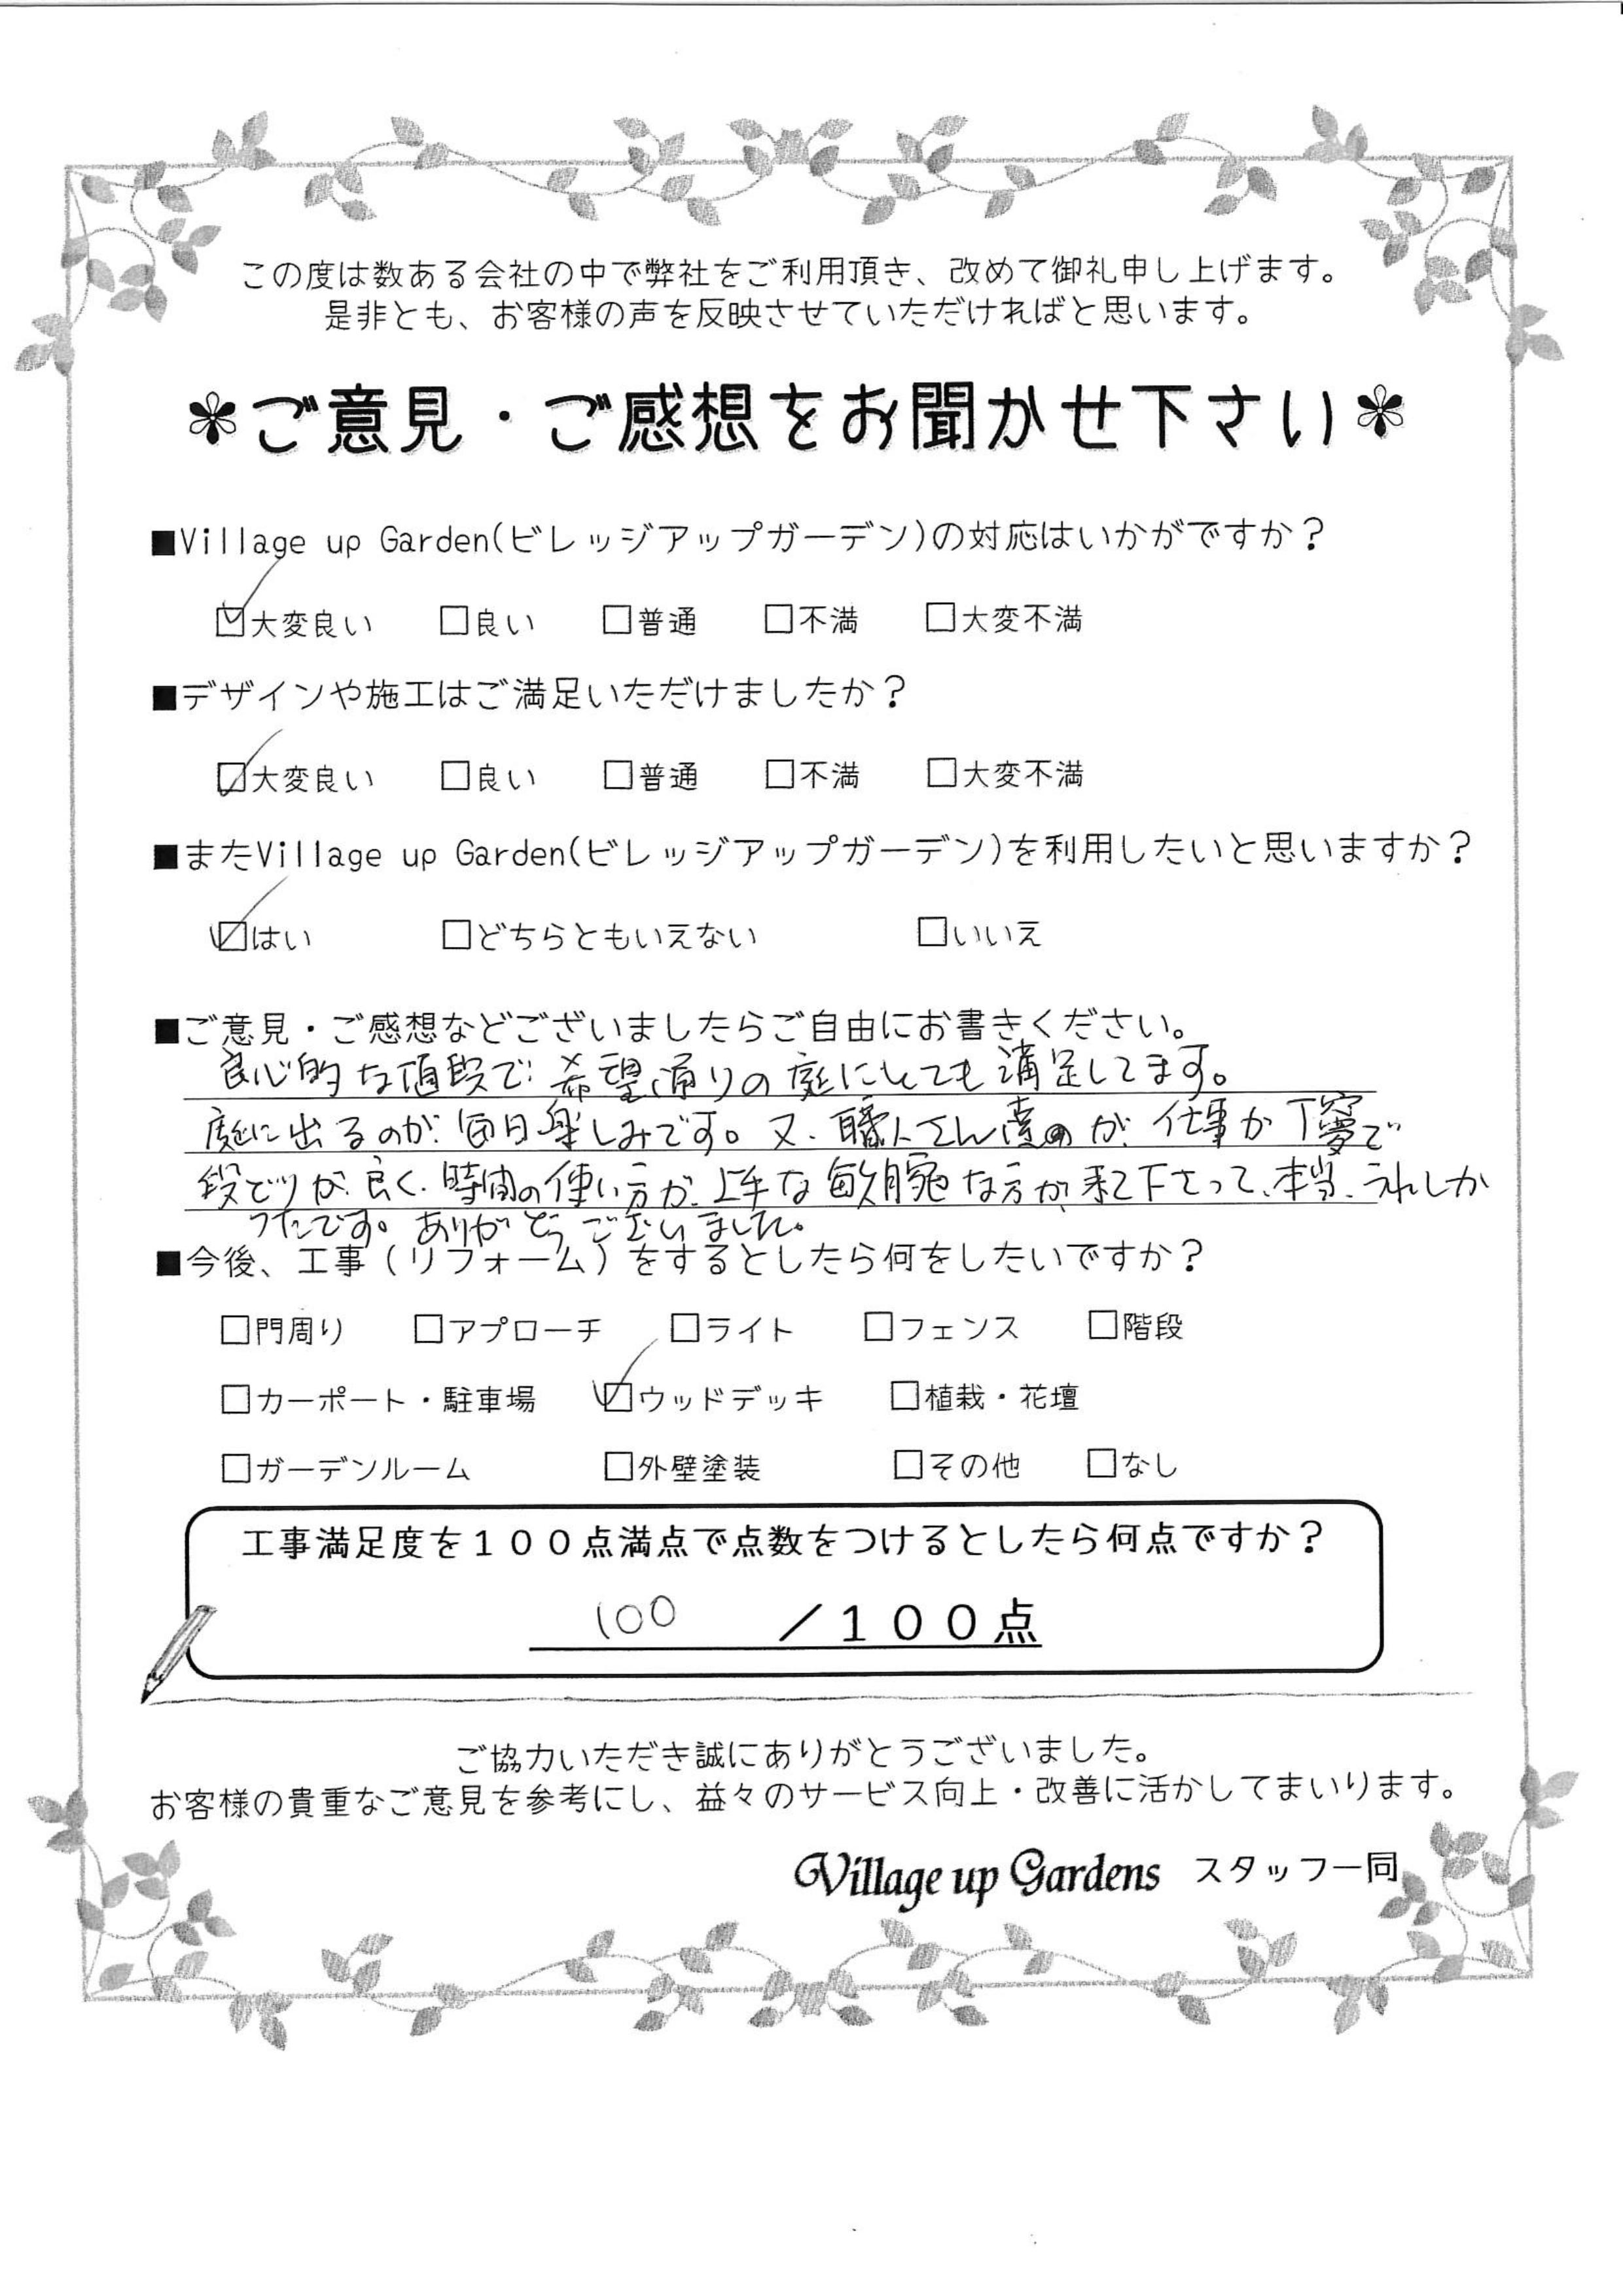 この度は数ある会社の中で弊社をご利用頂き、改めて御礼申し上げます。
是非とも、お客様の声を反映させていただければと思います。
＊ご意見・ご感想をお聞かせ下さい＊
■Village up Garden(ビレッジアップガーデン)の対応はいかがですか？
☑大変良い □良い □普通 □不満 □大変不満
■デザインや施工はご満足いただけましたか？
☑大変良い □良い □普通 □不満 □大変不満
■またVillage up Garden(ビレッジアップガーデン)を利用したいと思いますか？
☑はい □どちらともいえない □いいえ
■ご意見・ご感想などございましたらご自由にお書きください。
良心的な値段で希望通りの庭にとても満足してます。
庭に出るのが毎日楽しみです。又、職人さん達が、仕事が丁寧で
段どりが良く、時間の使い方が上手な敏腕な方が来て下さって、本当、うれしか
ったです。ありがとうございました。
■今後、工事（リフォーム）をするとしたら何をしたいですか？
□門周り □アプローチ □ライト □フェンス □階段
□カーポート・駐車場 ☑ウッドデッキ □植栽・花壇
□ガーデンルーム □外壁塗装 □その他 □なし
工事満足度を１００点満点で点数をつけるとしたら何点ですか？
100 ／１００点
ご協力いただき誠にありがとうございました。
お客様の貴重なご意見を参考にし、益々のサービス向上・改善に活かしてまいります。
Village up Gardens スタッフ一同